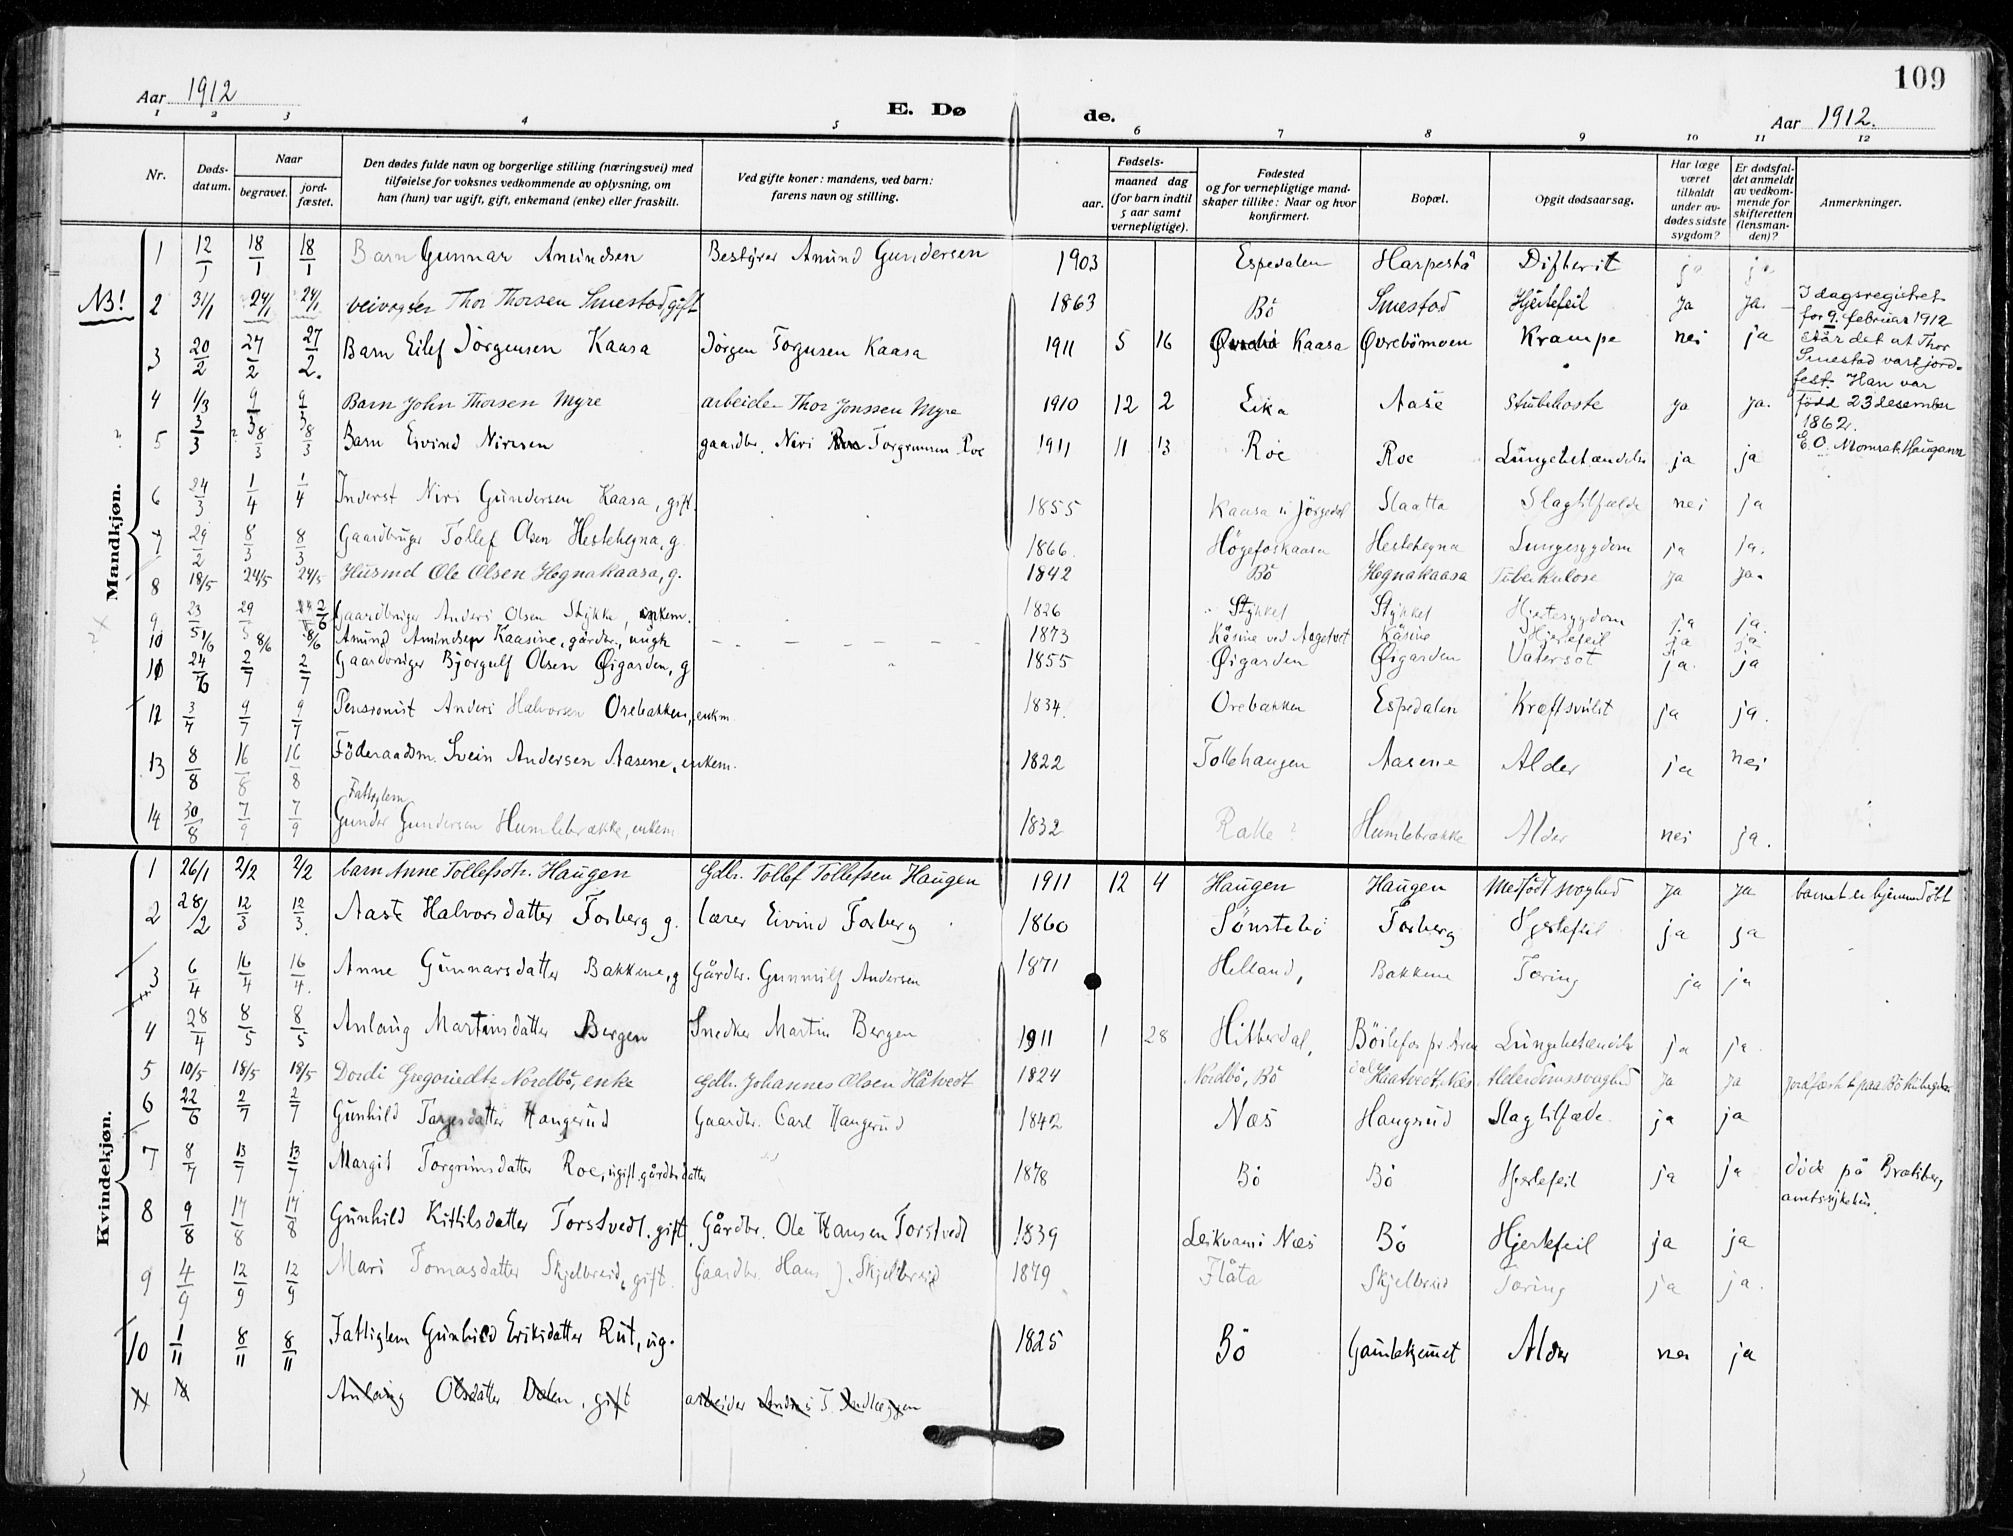 109
Aar 1912
E. Dø de.
Aar 1912.
1 2 3 4 5 6 7 8 9 10 11 12
Nr.
Døds-datum.
Naar
begravet.
jord-fæstet.
Den dødes fulde navn og borgerlige stilling (næringsvei) med
tilføielse for voksnes vedkommende av oplysning, om
han (hun) var ugift, gift, enkemand (enke) eller fraskilt.
Ved gifte koner: mandens, ved barn:
farens navn og stilling.
Fødsels-
aar. maaned dag
(for barn indtil
5 aar samt
vernepligtige).
Fødested
og for vernepligtige mand-
skaper tillike: Naar og hvor
konfirmert.
Bopæl.
Opgit dødsaarsag.
Har læge
været
tilkaldt
under av-
dødes sidste
sygdom?
Er dødsfal-
det anmeldt
av vedkom-
mende for
skifteretten
(lensman-
den)?
Anmerkninger.
Mandkjøn.
1 12/1 18/1 18/1 Barn Gunnar Amundsen Bestyrer Amund Gundersen 1903 Espedalen Harpestå Difterit ja ja
NB! 2 31/1 24/1 24/1 veivogter Thor Thorsen Smestad, gift 1863 Bö Smestad Hjertefeil ja ja.
I dagsregistret
for 9. februar 1912
står det at Thor
Smestad vart jord-
fest. Han var
född 23 desember
1862.
3 20/2 24/2 27/2. Barn Eilef Jörgensen Kaasa Jörgen Torgusen Kaasa 1911 5 16 Kaasa Øvrebömoen Krampe nei ja
4 1/3 9/3 9/3 Barn John Thorsen Myre arbeider Thor Jonssen Myre 1910 12 2 Eika Aase Strubehoste ja ja.
5 3/3 8/3 8/3 Barn Eivind Nirisen gaardbr. Niri Torgrimsen Roe 1911 11 13 Roe Roe Lungebetændelse ja ja
6 24/3 1/4 1/4 Inderst Niri Gundersen Kaasa, gift. 1855 Kaasa i Jörgedal Slaatta Slagtilfælde nei ja
7 29/2 8/3 8/3 Gaardbruger Tollef Olsen Hestehegna, g. 1866. Högefoskaasa Hestehegna Lungesygdom ja ja.
8 18/5 24/5 24/5 Husmd Ole Olsen Hegnakaasa, g. 1842 Bö Hegnakaasa Tuberkulose ja ja.
9 23/5 29/5 2/6 Gaardbruger Anders Olsen Stykke, enkem. 1826 Stykket Stykket Hjertesygdom ja ja.
10 1/6 8/6 8/6 Amund Amundsen Kaasine, gårdbr., ungk - - - - 1873 Kåsine ved Aagetveit Kåsine Hjertefeil ja ja
11 24/6 2/7 2/7 Gaardbruger Bjørgulf Olsen Øigarden, g 1855 Øigarden Øigarden Vatersot ja. ja
12 3/7 9/7 9/7 Pensionist Anders Halvorsen Orebakken, enkm. 1834. Orebakken Espedalen Kræftsvulst ja ja.
13 8/8 16/8 16/8 Föderaadsm. Svein Andersen Aasene, enkem. 1822 Tollehaugen Aasene Alder ja nei
14 30/8 7/9 7/9 Fattiglem Gunder Gundersen Humlebrække, enkem 1832 Humlebrække Alder nei ja.
Kvindekjøn.
1 26/1 2/2 2/2 barn Anne Tollefsdtr. Haugen Gdbr. Tollef Tollefsen Haugen 1911 12 4 Haugen Haugen Medfödt svaghed ja ja barnet er hjemmedöbt
2 28/2 12/3 12/3. Aaste Halvorsdatter Forberg g. lærer Eivind Forberg 1860 Sönstebö Forberg Hjertefeil ja ja
3 6/4 16/4 16/4. Anne Gunnarsdatter Bakkene, g Gårdbr. Gunnulf Andersen 1871 Helland, Bakkene Tæring ja ja
4 28/4 8/5 8/5 Anlaug Martinsdatter Bergen Snedker Martin Bergen 1911 1 28 Hitterdal, Böilefos pr. Arendal Lungebetændelse ja ja
5 10/5 18/5 18/5 Dordi Gregoriedtr Nordbö, enke Gdbr. Johannes Olsen Håtvedt 1824 Nordbö, Bö Haatvedt, Næs Alderdomssvaghed ja ja jordfæstet paa Bö kirkegård
6 22/6 2/7 2/7 Gunhild Targesdatter Haugerud Gaardbr. Carl Haugerud 1842 Næs Haugerud Slagtilfæde. ja ja
7 8/7 13/7 13/7 Margit Torgrimsdatter Roe, ugift gårdbr.datter 1878 Bö Bö Hjertefeil ja ja döde på Bratsberg
amtssykehus.
8 9/8 17/8 17/8 Gunhild Kittilsdatter Torstvedt, gift. Gårdbr. Ole Hansen Torstvedt 1839 Leikvam i Næs Bö Hjertefeil ja ja
9 4/9 12/9 12/9 Mari Tomasdatter Skjelbreid, gift. Gaardbr. Hans J. Skjelbreid 1879 Flåta Skjelbreid Tæring ja ja.
10 1/11 8/11 8/11 Fattiglem Gunhild Eriksdatter Rut, ug. 1825 Bö Gamlehjemet Alder nei ja
Anlaug Olsdatter Dalen, gift arbeider Anders T.